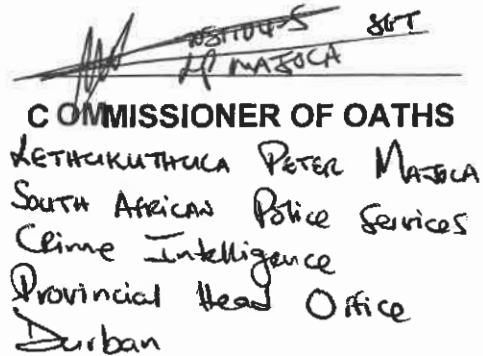 SGT
LP MAJOLA
COMMISSIONER OF OATHS
LETHUKUTHULA PETER MAJOLA
South African Police Services
Crime Intelligence
Provincial Head Office
Durban